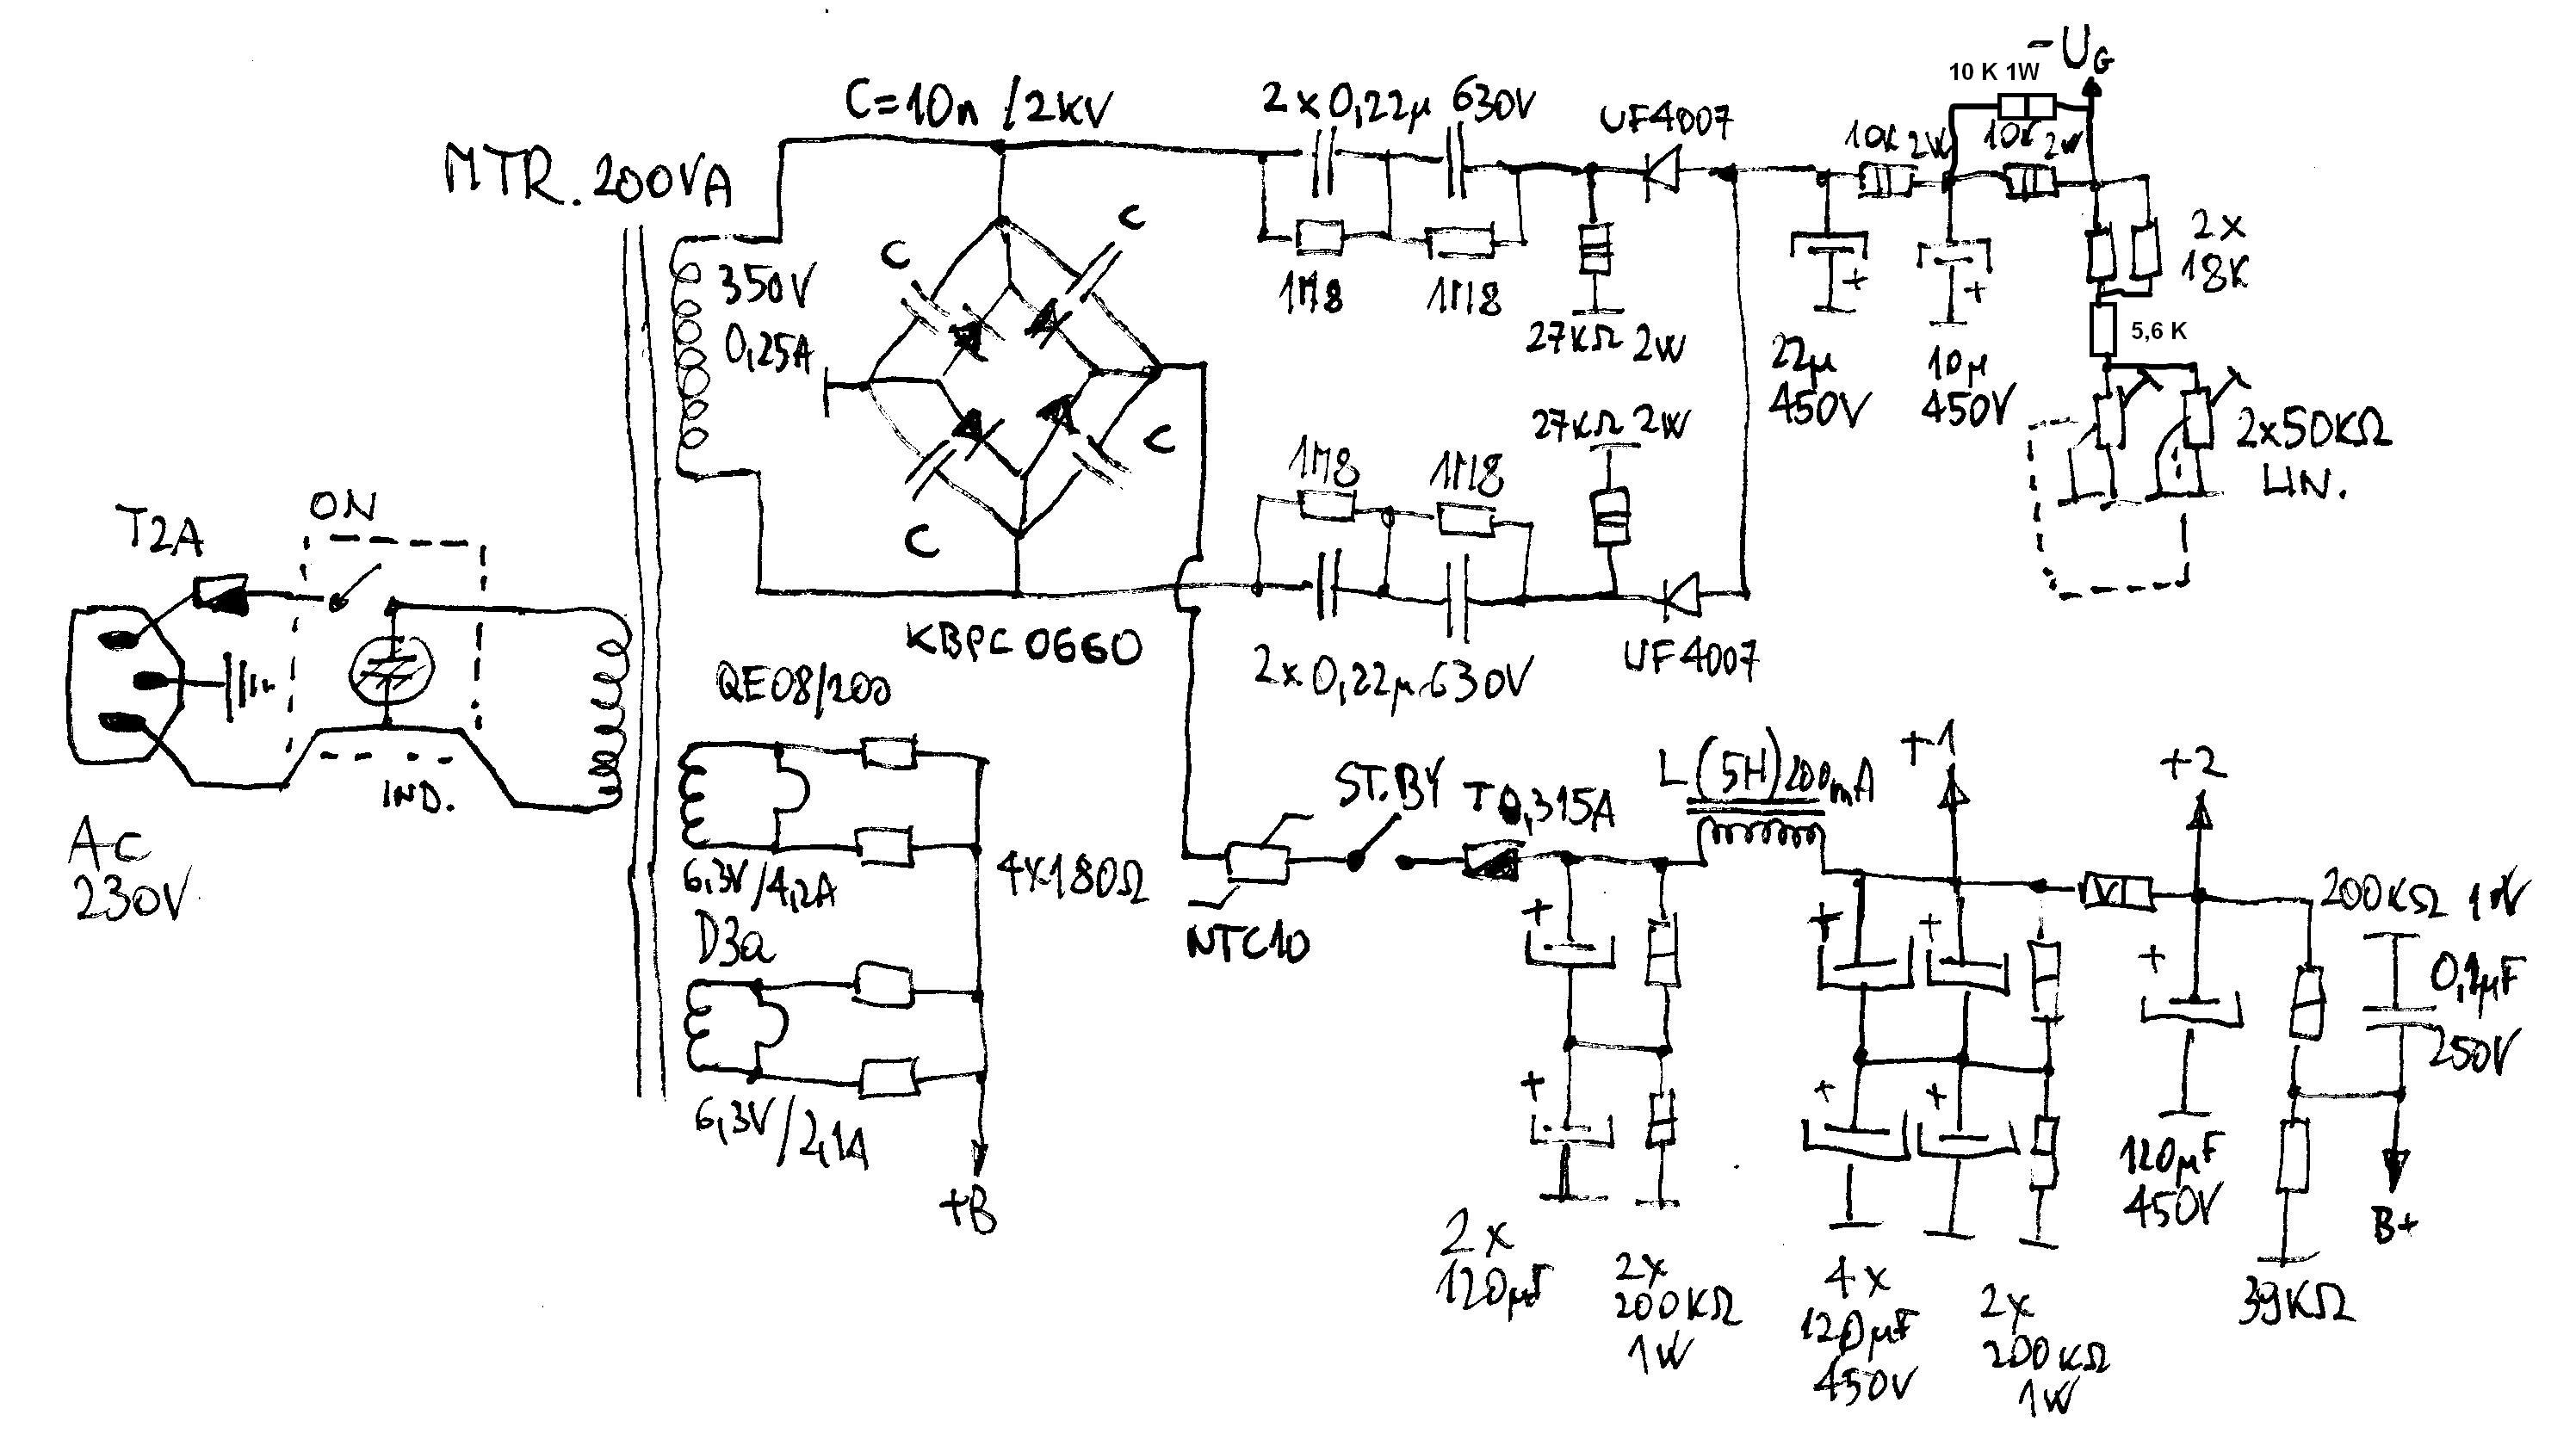 -UG
10 K 1W
C=10n /2KV
2x0,22µ 630V
UF4007
10K 2W
10K 2W
MTR. 200VA
C
C
350V
0,25A
1M8
1M8
2x
18K
27KΩ 2W
22µ
450V
+
10µ
450V
+
5,6 K
27KΩ 2W
2x50KΩ
LIN.
1M8
1M8
C
C
T2A
ON
KBPC 0660
2x0,22µ 630V
UF4007
QE08/200
IND.
AC
230V
6,3V/4,2A
4x180Ω
D3a
6,3V/2,1A
+B
NTC10
ST.BY
T0,315A
L(5H)200mA
+1
+2
200KΩ 1W
0,1µF
250V
+
+
+
+
+
+
+
2x
120µF
2x
200KΩ
1W
4x
120µF
450V
2x
200KΩ
1W
120µF
450V
39KΩ
B+